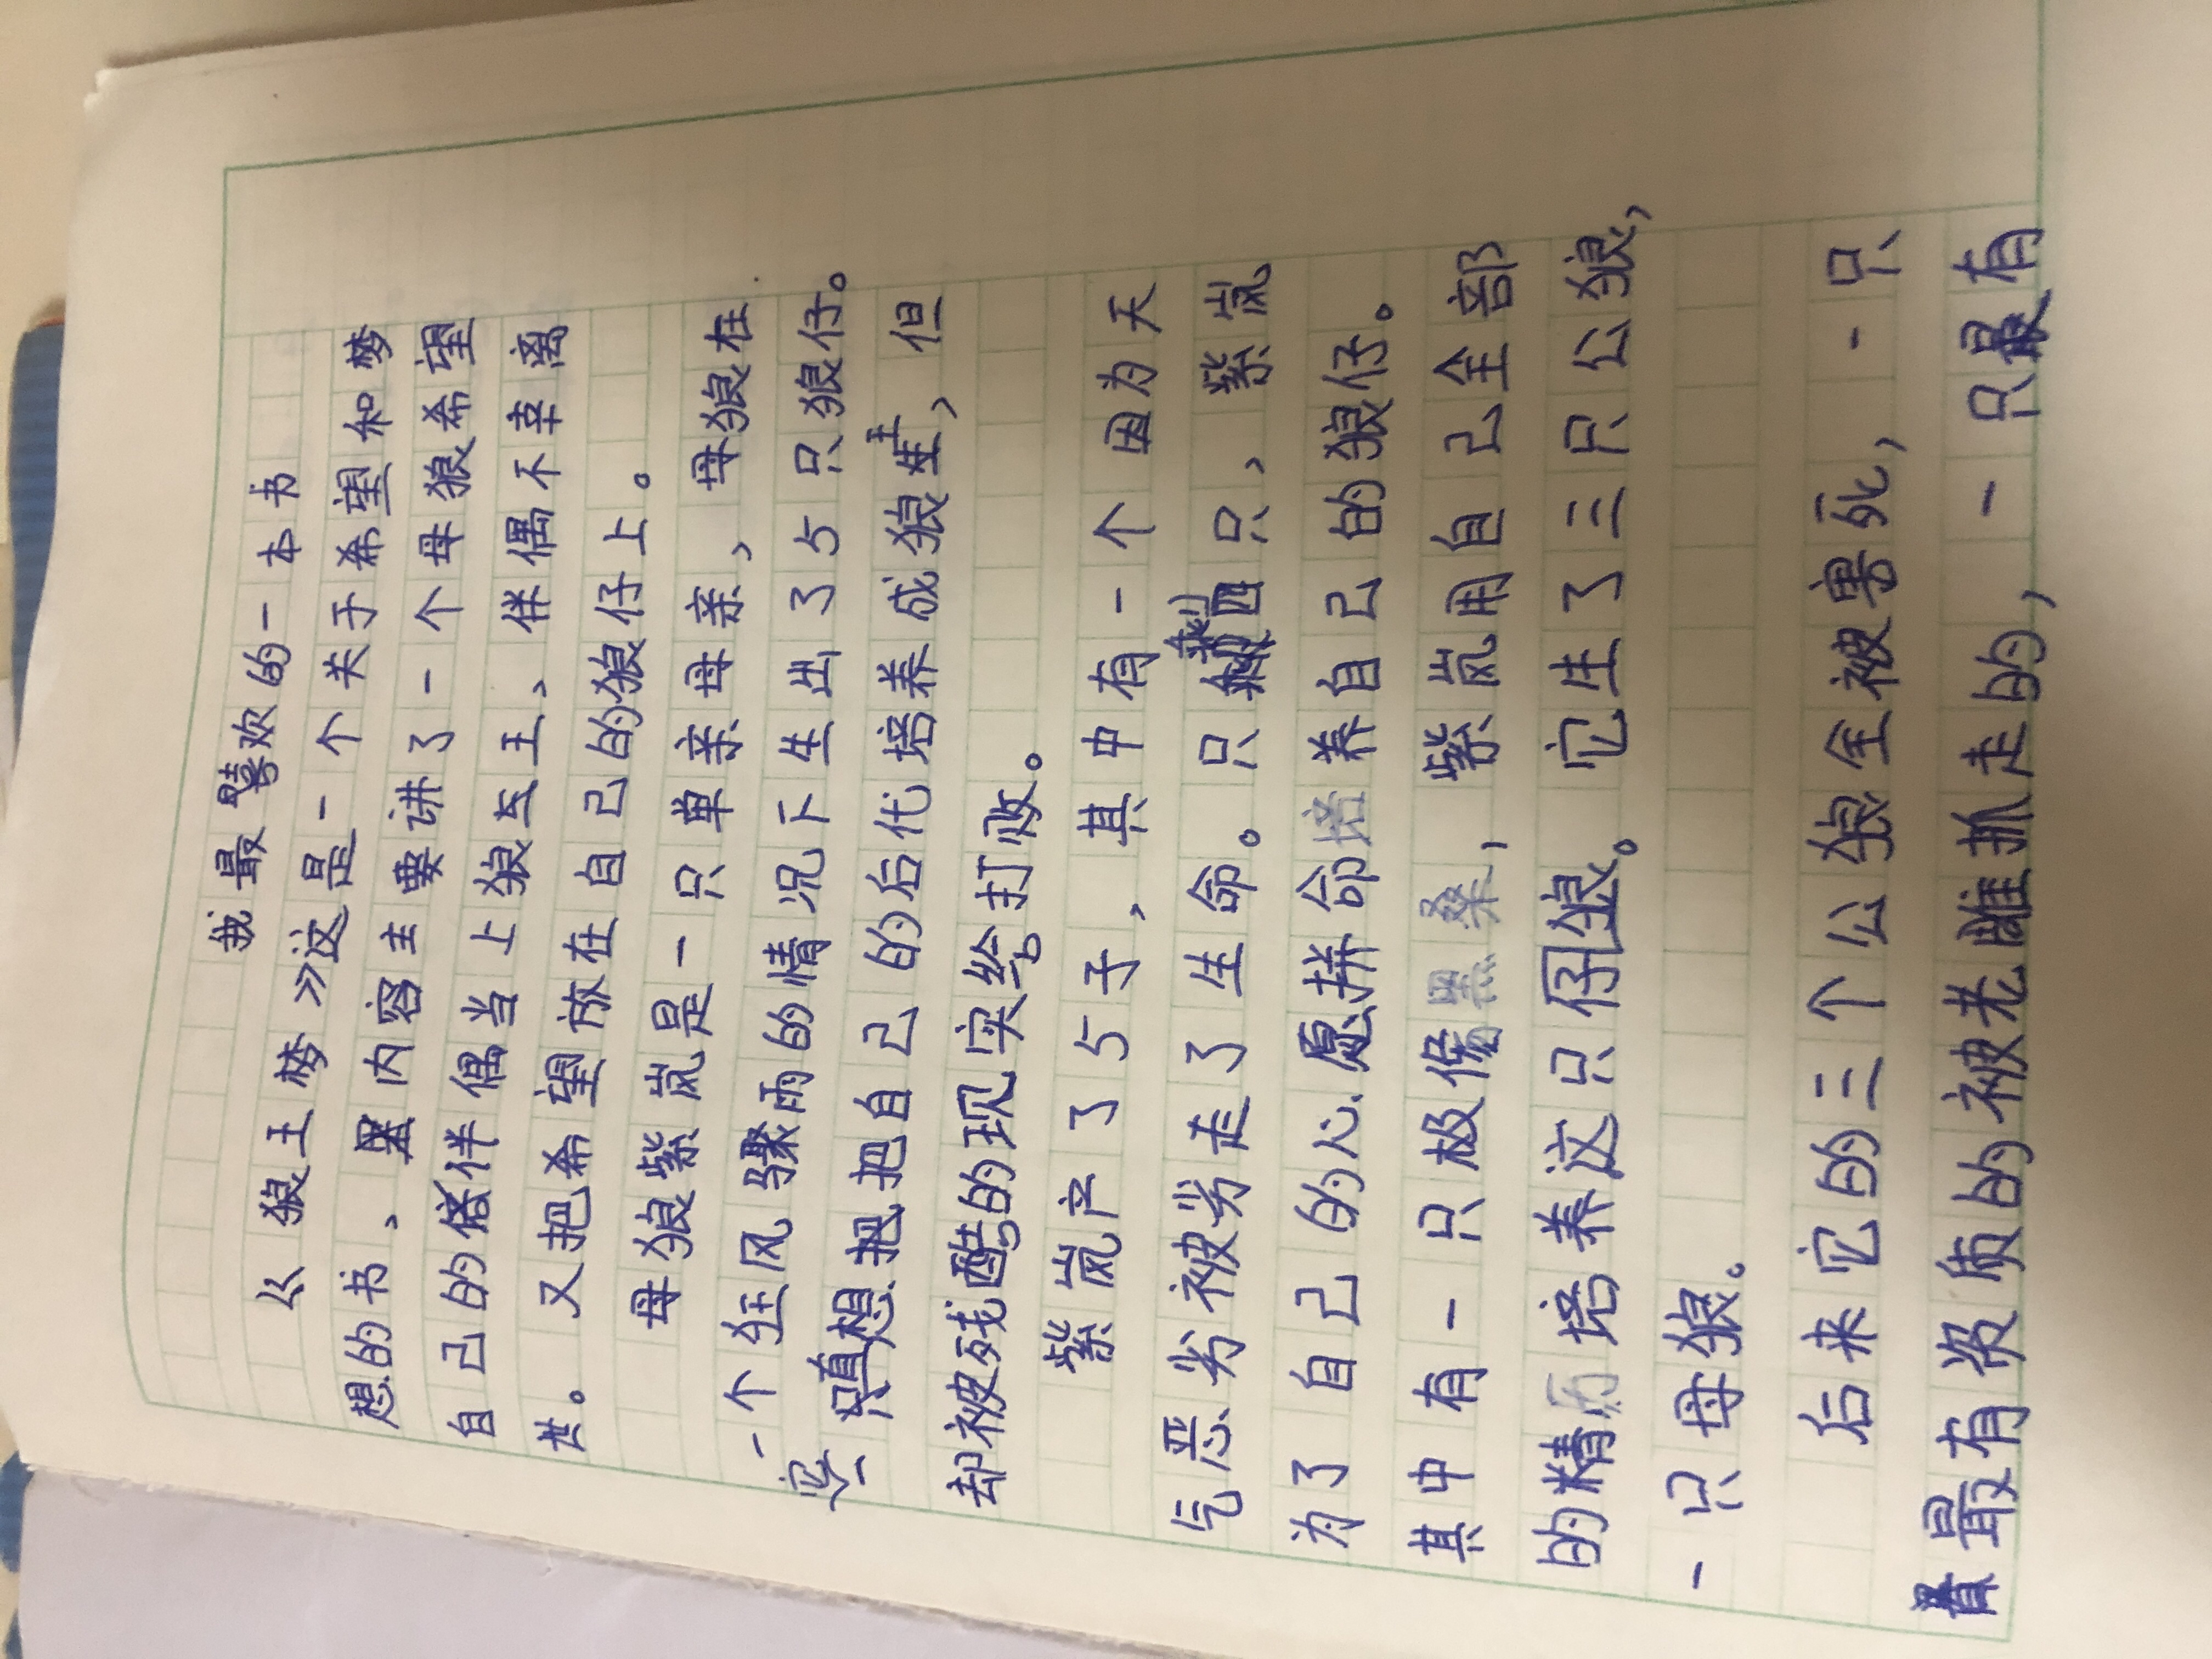 我最喜欢的一本书
《狼王梦》这是一个关于希望和梦
想的书、内容主要讲了一个母狼希望
自己的伴偶当上狼王、伴偶不幸离
世。又把希望放在自己的狼仔上。
母狼紫岚是一只单亲母亲，母狼在
一个狂风骤雨的情况下生出了5只狼仔。
它只想把自己的后代培养成狼王，但
却被残酷的现实给打败。
紫岚产了5子，其中有一个因为天
气恶劣被劣走了生命。只剩四只，紫岚
为了自己的心愿拼命培养自己的狼仔。
其中有一只极像黑桑，紫岚用自己全部
的精历培养这只仔狼。它生了三只公狼，
一只母狼。
后来它的三个公狼全被害死，一只
最有资质的被老雕抓走的，一只最有